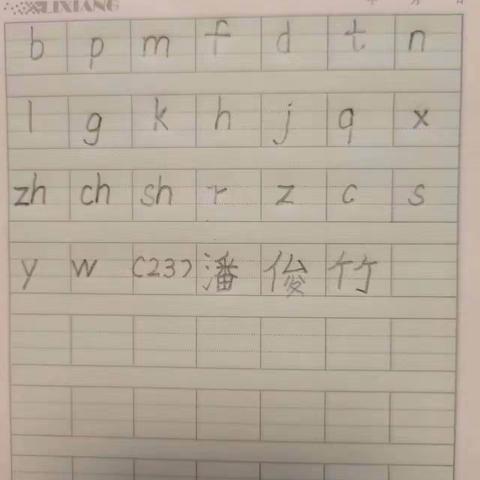 LIXIANG
b p m f d t n
l g k h j q x
zh ch sh r z c s
y w (23) 潘 俊 竹